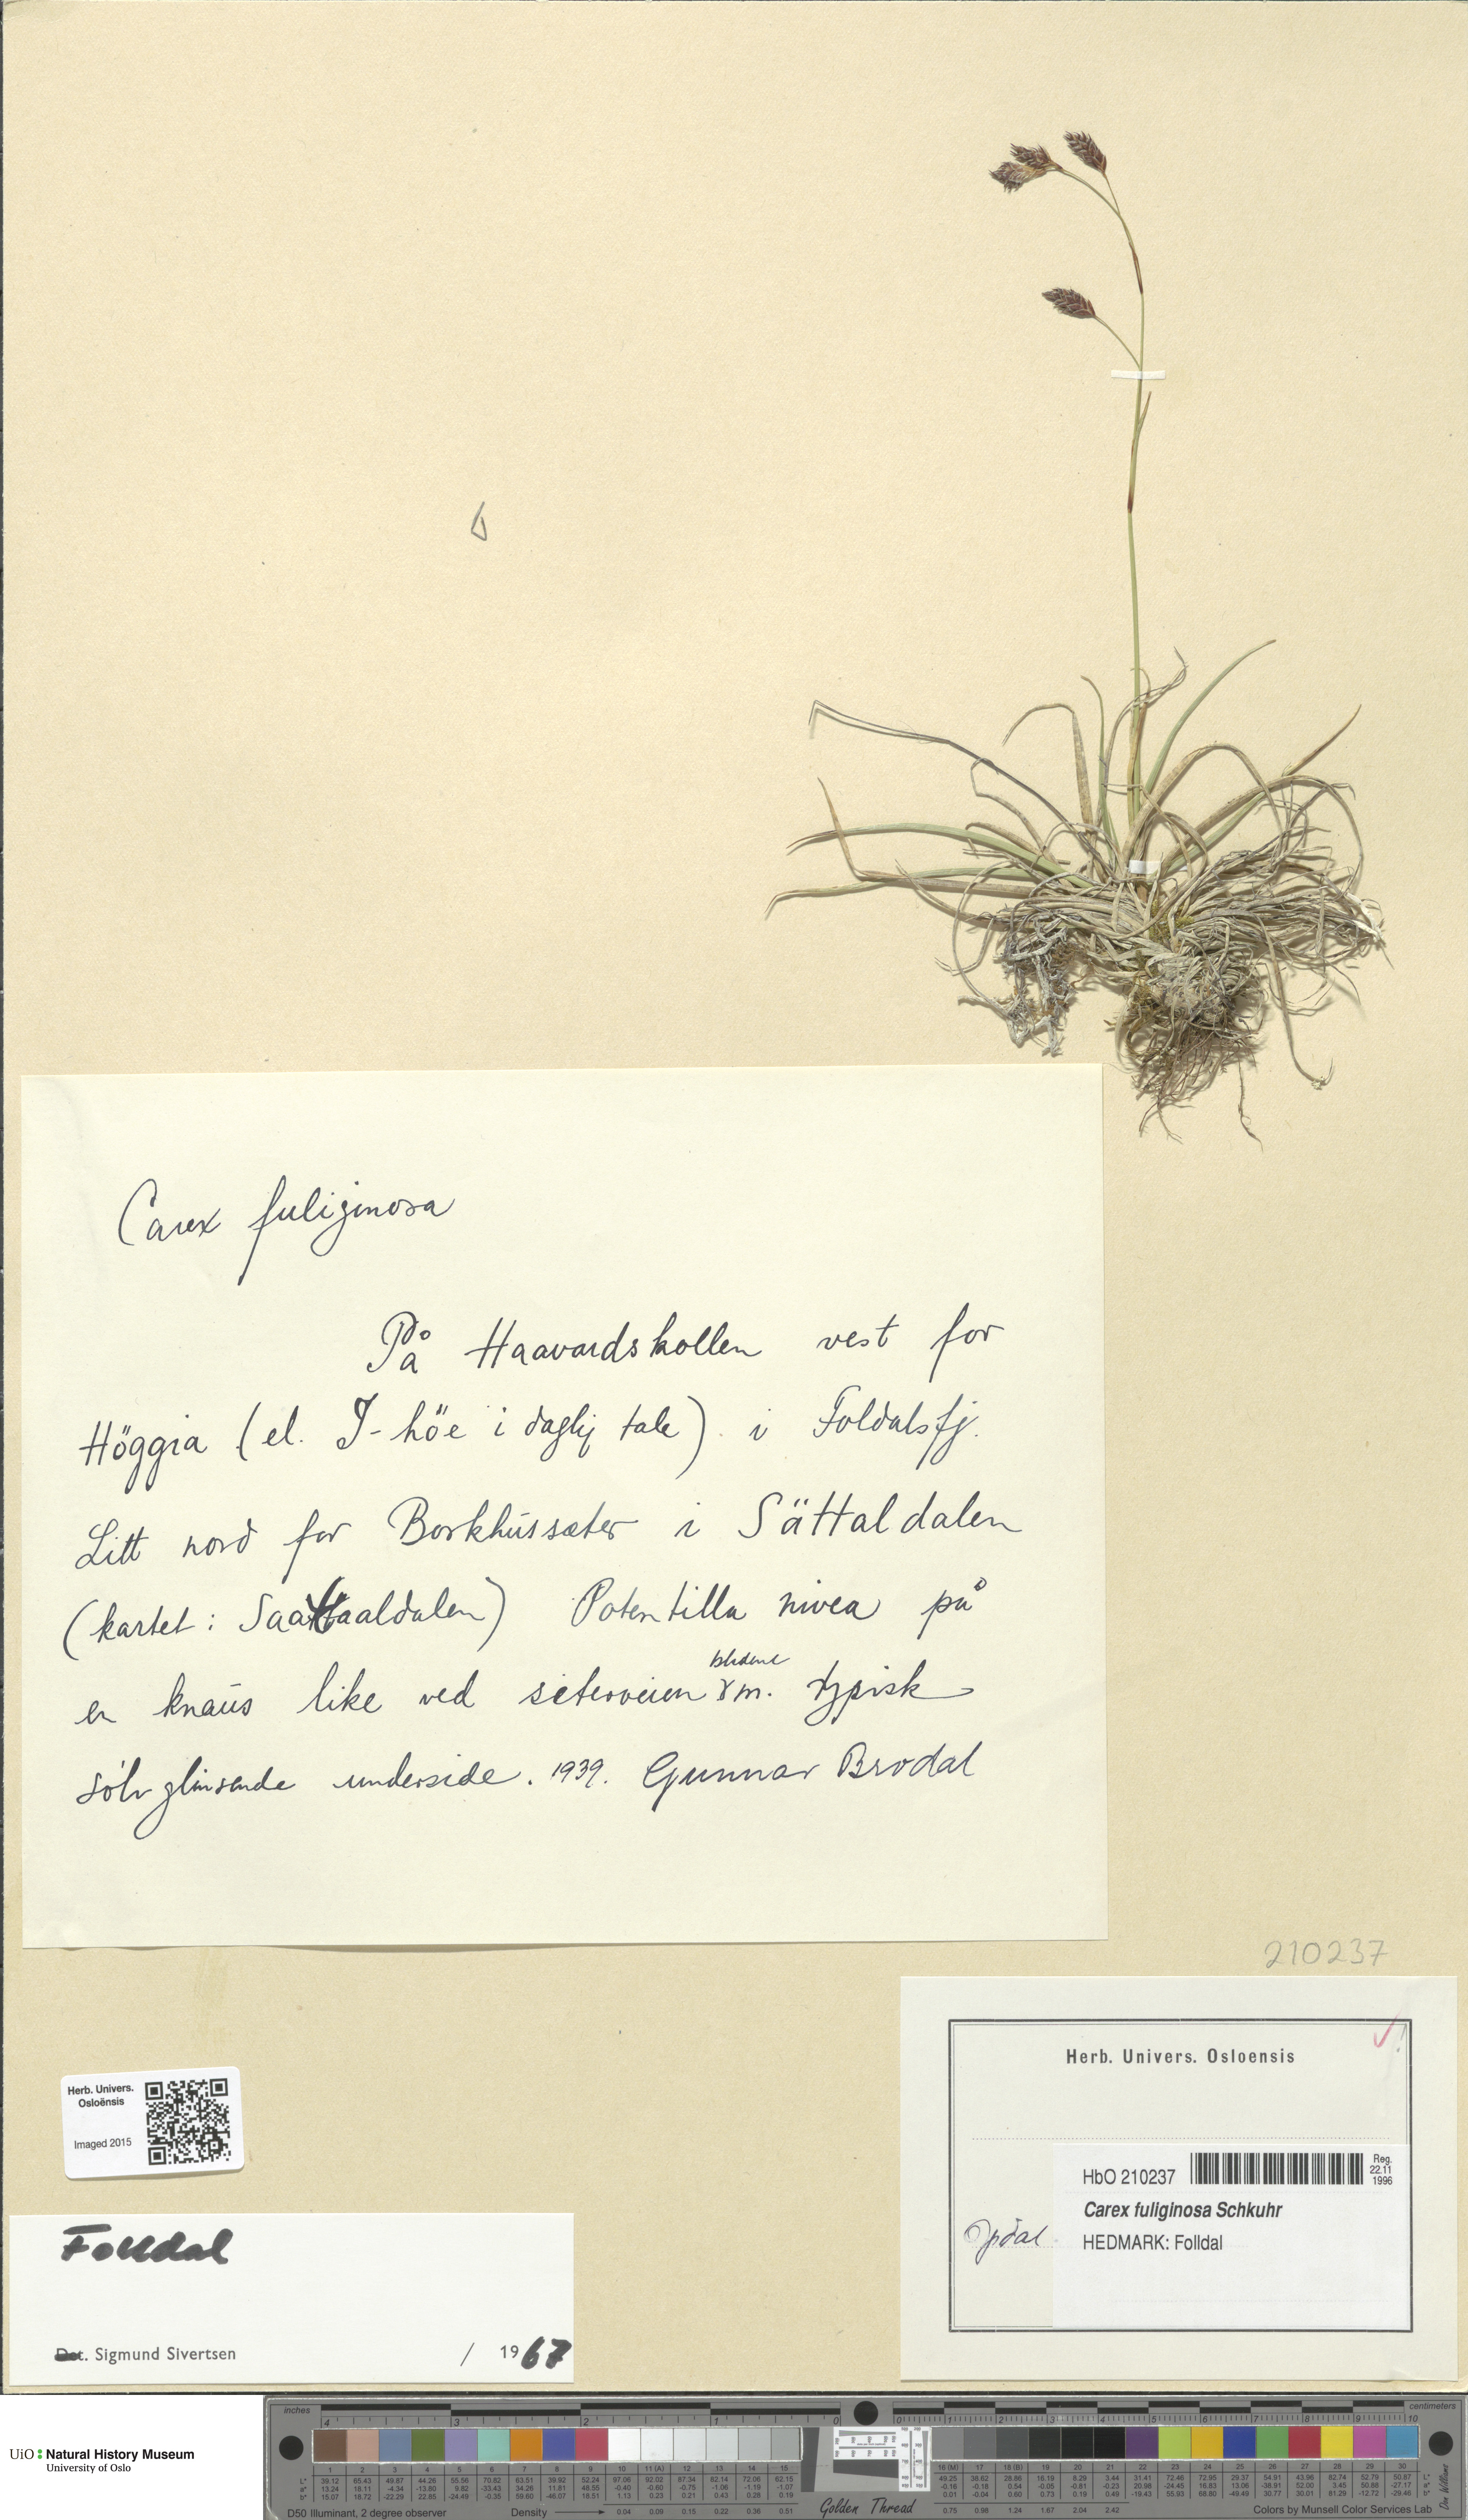 Carex fuliginosa
På Haavardskollen vest for
Höggia (el. J-höe i daglig tale) i Foldalsfj.
Litt nord for Borkhussæter i Sättaldalen
(kartet: Saattaaldalen) Potentilla nivea på
en knaus like ved seterveien m. typisk
sölvglinsende underside. 1939. Gunnar Brodal
210237
Herb. Univers. Osloensis
HbO 210237
Reg.
22.11
1996
Carex fuliginosa Schkuhr
HEDMARK: Folldal
Opdal
Herb. Univers.
Osloënsis
Imaged 2015
Folldal
Det. Sigmund Sivertsen / 1967
UiO Natural History Museum
University of Oslo
inches
centimeters
D50 Illuminant, 2 degree observer
Density
Golden Thread
Colors by Munsell Color Services Lab